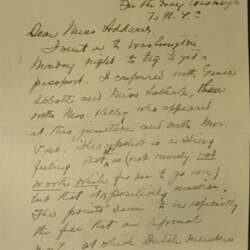 On the Way Cosmogh
To N.Y.C.
Dear Miss Addams
I went on to Washington
Monday night to try to get a
passport. I conferred with Grace
Abbott and Miss Lathrop, then
with Mrs. Kelley who appeared
at this juncture and with Mrs.
Post. The upshot is a strong
feeling that it is (not merely not
worth while for me to go now)
but that it is positively unwise.
The points seem to be especially
the fear that an informal
at which Dutch members